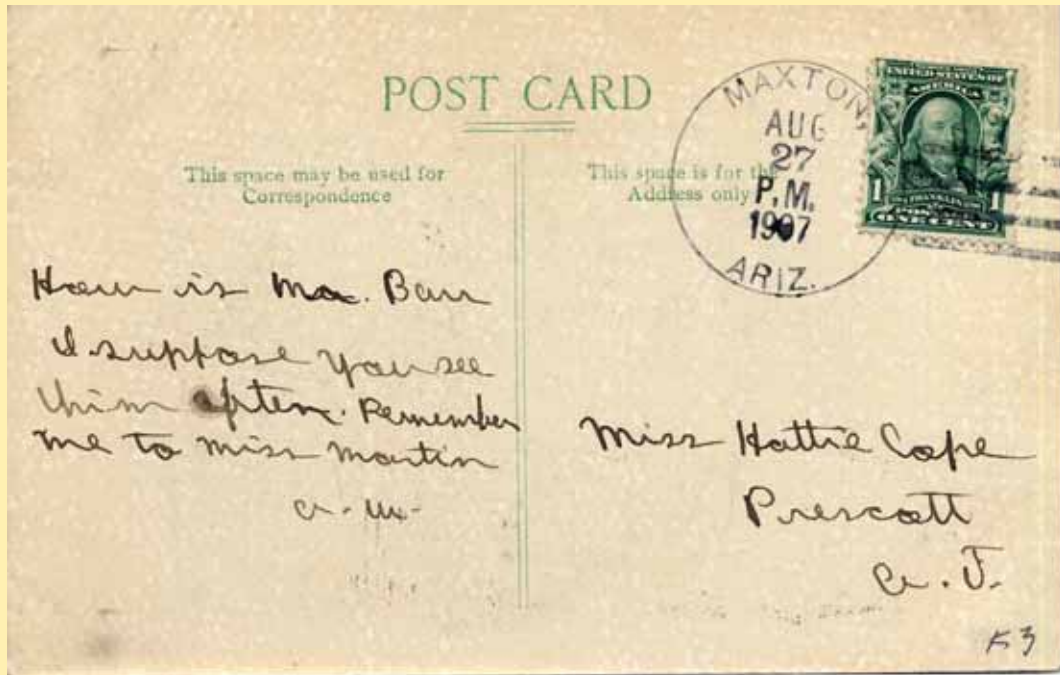 POST CARD
This space may be used for
Correspondence
This space is for the
Address only
MAXTON,
AUG
27
P.M.
1907
ARIZ.
UNITED STATES OF
AMERICA
1 FRANKLIN 1
ONE CENT
How is Mr. Barr
I suppose you see
him often. Remember
me to Miss Martin
a. m.
Miss Hattie Cope
Prescott
A. T.
K3